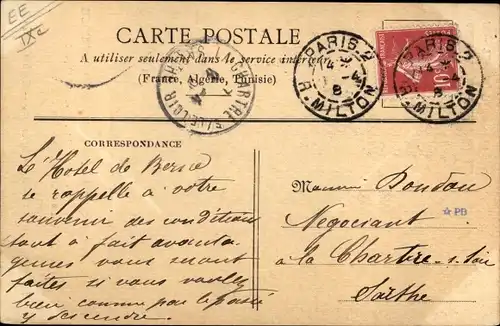 EE
IXe
CARTE POSTALE
A utiliser seulement dans le service intérieur
(France, Algérie, Tunisie)
PARIS 2
R. MILTON
PARIS 2
R. MILTON
CHARTRE S/ LE LOIR
10
CORRESPONDANCE
L'Hotel de Berne
se rappelle à votre
souvenir des conditions
tout à fait avanta-
geuses vous seront
faites si vous voulez
bien comme par le passé
y descendre.
Monsieur Dondeau
Negociant
à la Chartre s. Loir
Sarthe
☆ PB